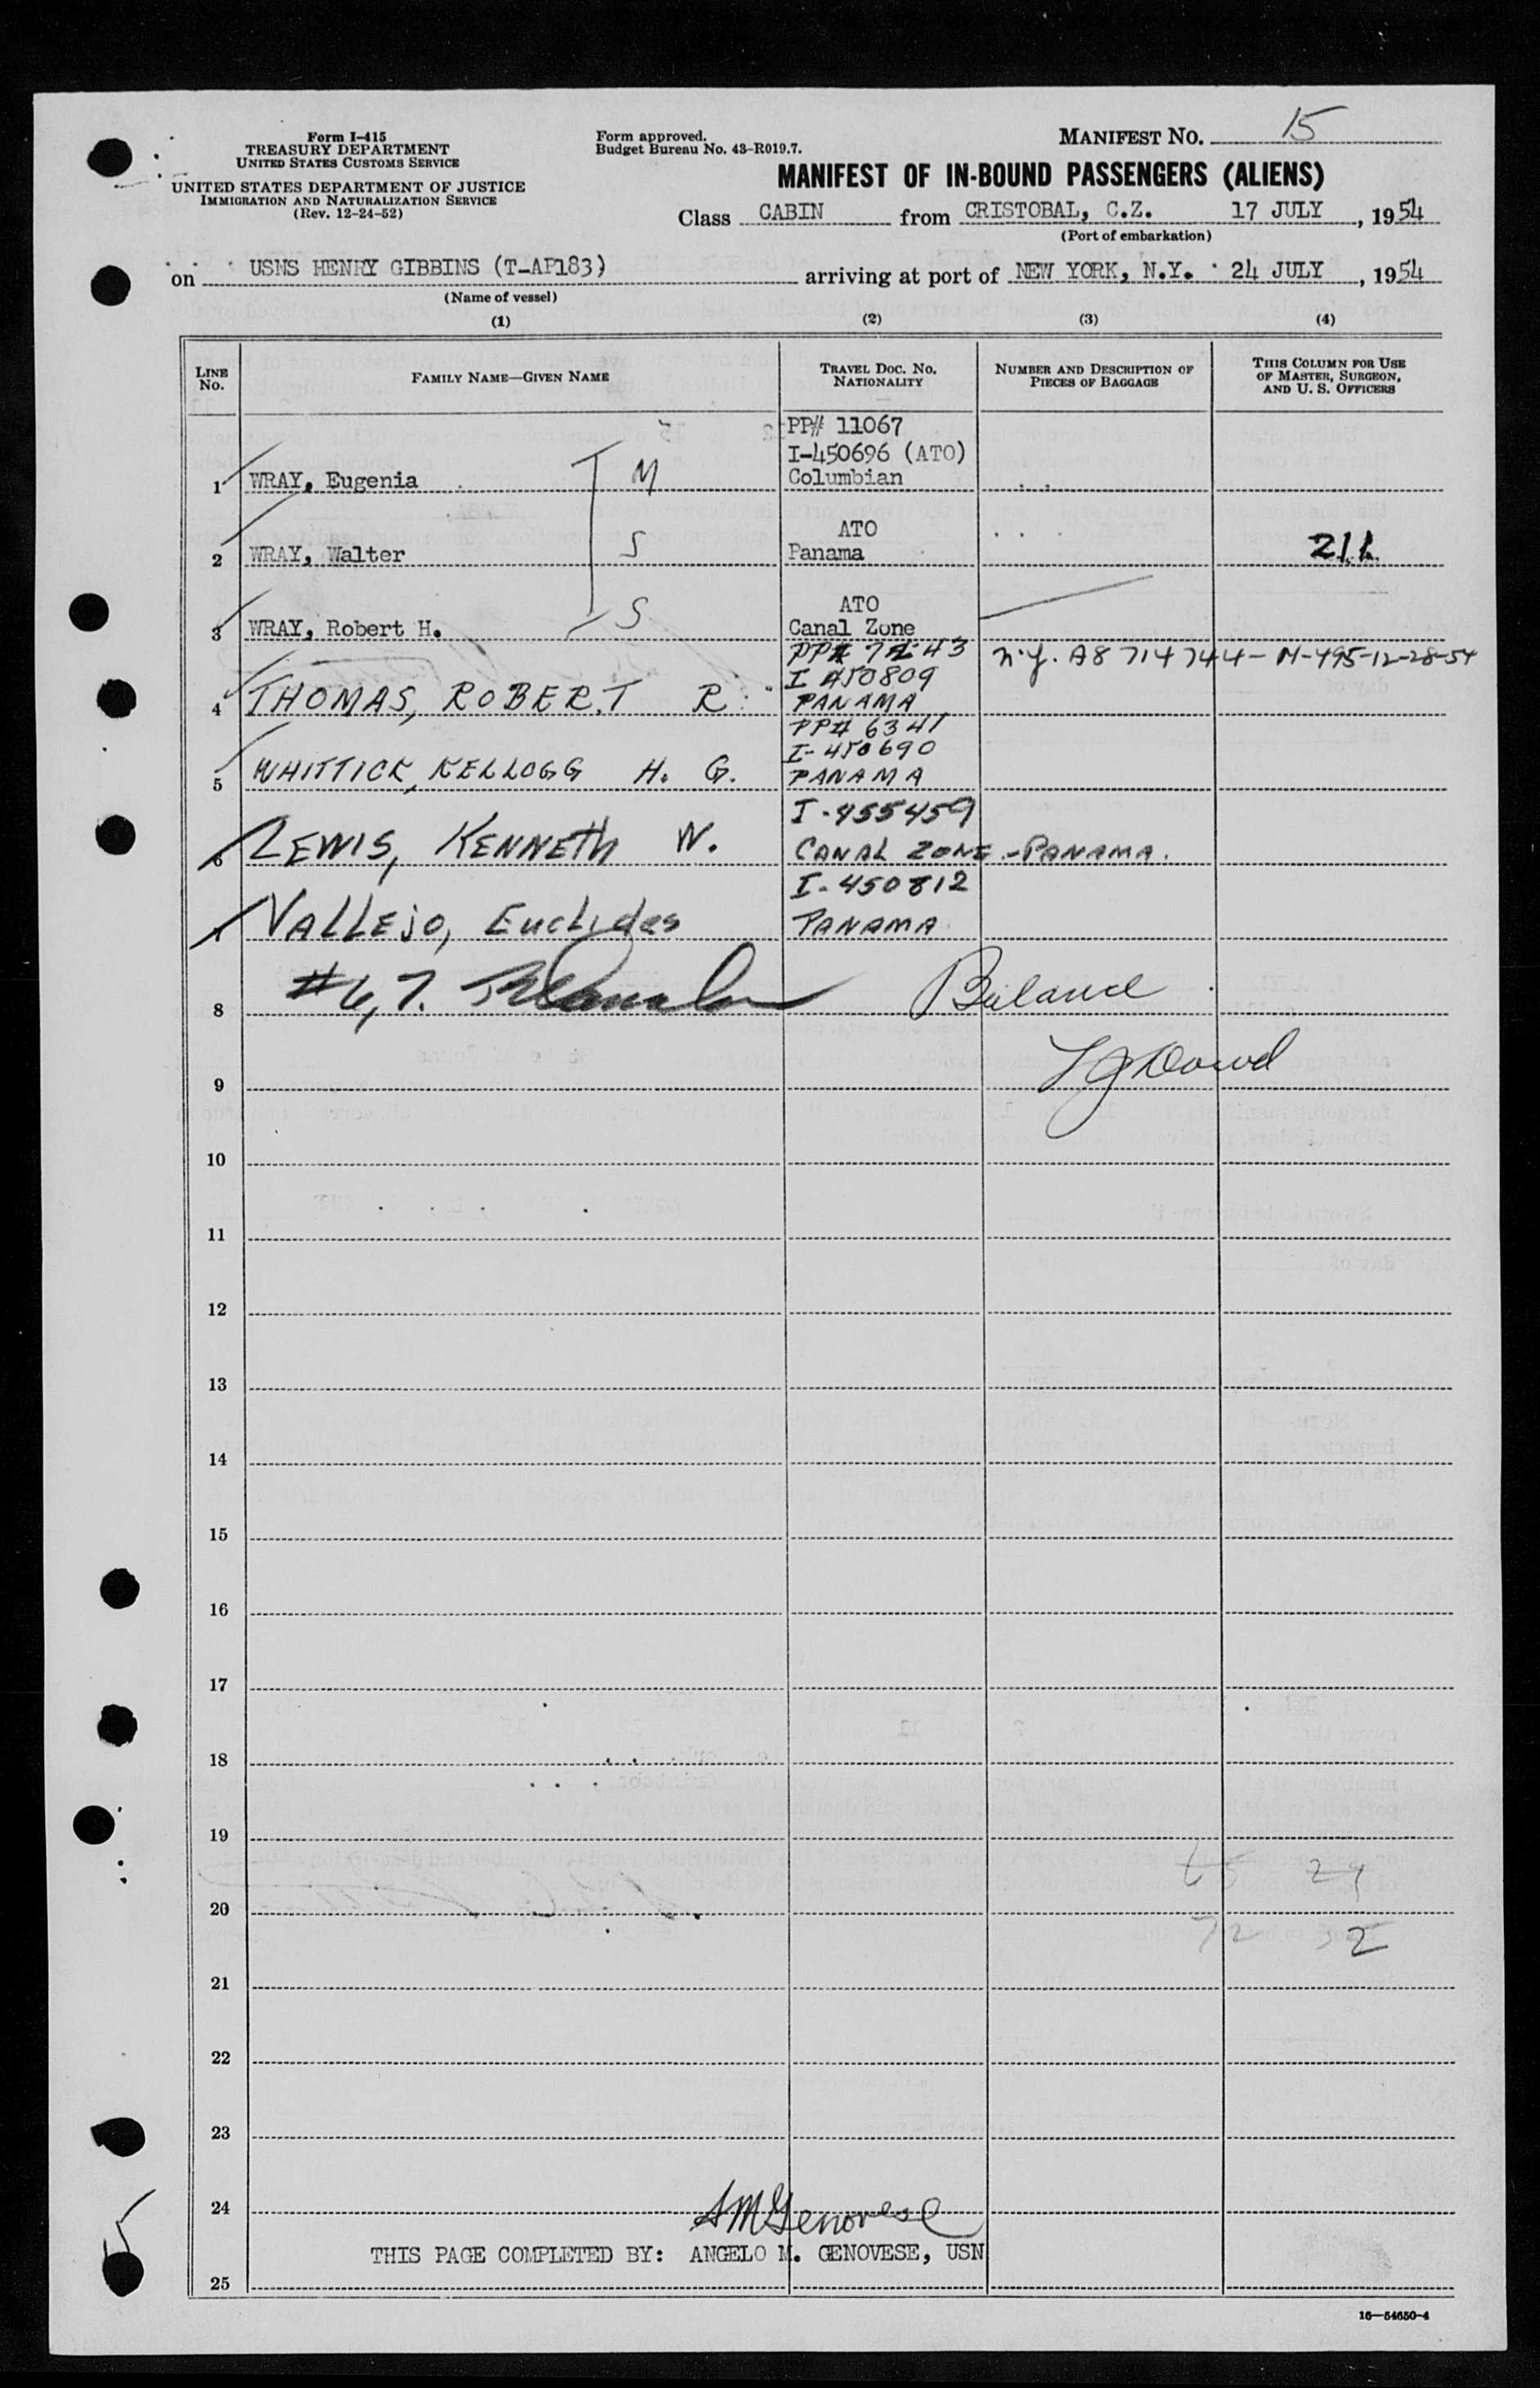 Form I-415
TREASURY DEPARTMENT
UNITED STATES CUSTOMS SERVICE
UNITED STATES DEPARTMENT OF JUSTICE
IMMIGRATION AND NATURALIZATION SERVICE
(Rev. 12-24-52)
Form approved.
Budget Bureau No. 43-R019.7.
MANIFEST NO. 15
MANIFEST OF IN-BOUND PASSENGERS (ALIENS)
Class CABIN from CRISTOBAL, C.Z. 17 JULY, 1954
(Port of embarkation)
on USNS HENRY GIBBINS (T-AP183) arriving at port of NEW YORK, N.Y. 24 JULY, 1954
(Name of vessel)
(1) (2) (3) (4)
LINE No.
FAMILY NAME—GIVEN NAME
TRAVEL DOC. NO. NATIONALITY
NUMBER AND DESCRIPTION OF PIECES OF BAGGAGE
THIS COLUMN FOR USE OF MASTER, SURGEON, AND U. S. OFFICERS
PP# 11067
I-450696 (ATO)
1 WRAY, Eugenia M Columbian
ATO
2 WRAY, Walter S Panama 211
ATO
3 WRAY, Robert H. S Canal Zone
N.Y. A8 714 744 - M-495-12-28-54
I 450809
4 THOMAS, ROBERT R. PANAMA
PP# 6341
I-450690
5 WHITTICK, KELLOGG H. G. PANAMA
I-455459
6 LEWIS, KENNETH W. CANAL ZONE - PANAMA.
I-450812
7 VALLEJO, Euclides PANAMA
8 #6,7. Balance
9
10
11
12
13
14
15
16
17
18
19
65 29
20
72 2
21
22
23
24 AMGenovese
THIS PAGE COMPLETED BY: ANGELO M. GENOVESE, USN
25
16—54650-4